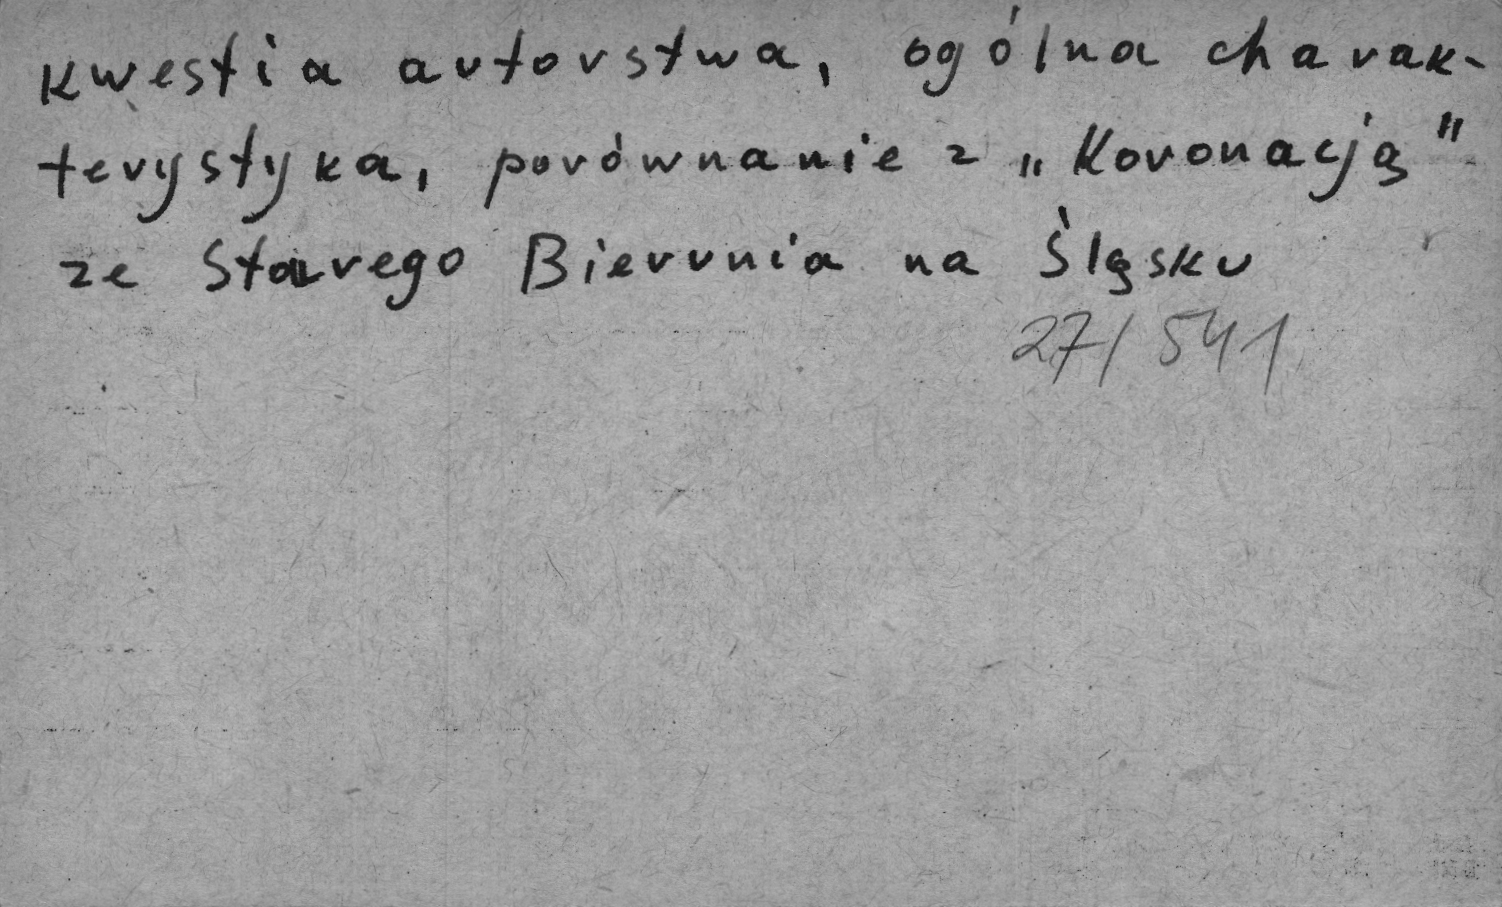 kwestia autorstwa, ogólna charak-
terystyka, porównanie z „Koronacją"
ze Starego Bierunia na Śląsku
27/541